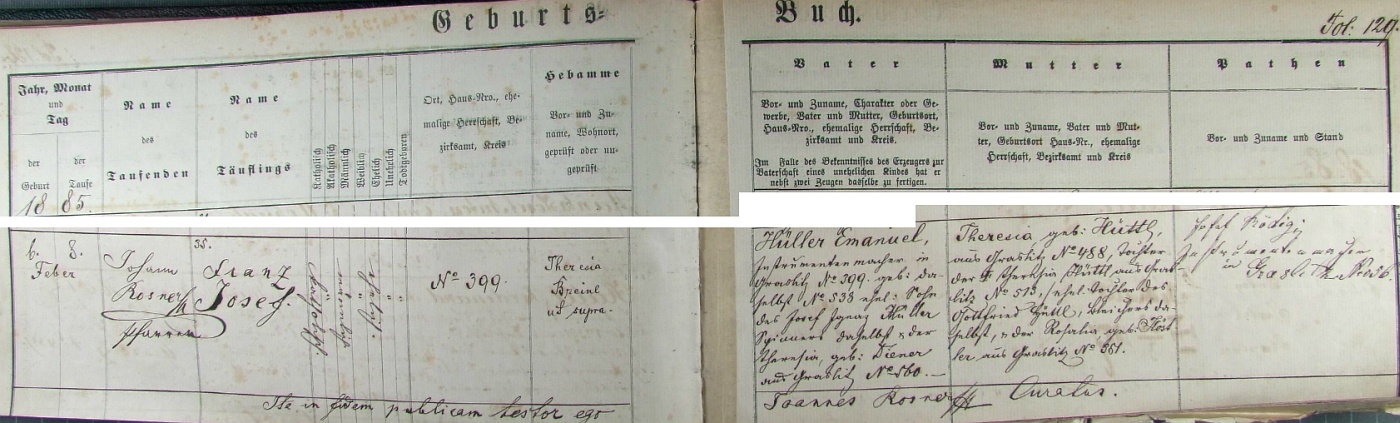 Geburts-
Buch.
Fol: 129.
Jahr, Monat
und
Tag
der
Geburt
der
Taufe
Name
des
Taufenden
Name
des
Täuflings
Katholisch
Akatholisch
Männlich
Weiblich
Ehelich
Unehelich
Todtgeboren
Ort, Haus-Nro., ehe-
malige Herrschaft, Be-
zirksamt, Kreis
Hebamme
Vor- und Zu-
name, Wohnort,
geprüft oder un-
geprüft
Vater
Vor- und Zuname, Charakter oder Ge-
werbe, Vater und Mutter, Geburtsort,
Haus-Nro., ehemalige Herrschaft, Be-
zirksamt und Kreis.
Im Falle des Bekenntnisses des Erzeugers zur
Vaterschaft eines unehelichen Kindes hat er
nebst zwei Zeugen dasselbe zu fertigen.
Mutter
Vor- und Zuname, Vater und Mut-
ter, Geburtsort Haus-Nr., ehemalige
Herrschaft, Bezirksamt und Kreis
Pathen
Vor- und Zuname und Stand
1885.
6.
Feber
8.
Johann
Rosner
Pfarrer
35.
Franz
Josef.
katholisch
männlich
ehelich
No 399.
Theresia
ut supra.
Hüller Emanuel,
Instrumentenmacher in
Graslitz No 399. geb: da-
selbst No 538 ehel: Sohn
des Josef Ignaz Hüller
Spinners daselbst u der
Theresia, geb: Diener
aus Graslitz No 560.
Theresia geb: Hüttl,
aus Graslitz No 488, Tochter
der Theresia Hüttl aus Gras-
litz No 573, ehel: Tochter des
Gottfried Hüttl, Bleichers da-
selbst, u der Rosalia geb:
aus Graslitz No 561.
Josef Rödig,
Instrumentenmacher
in Graslitz
Ita in fidem publicam testor ego
Joannes Rosner Curatus.